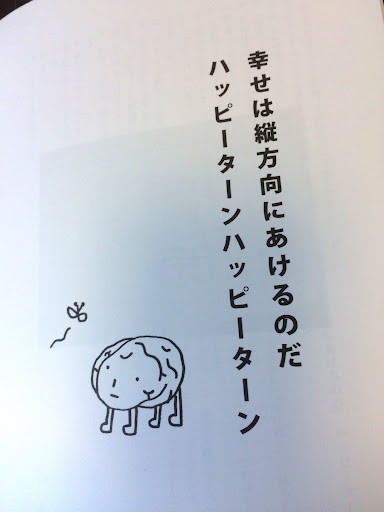 幸せは縦方向にあけるのだ
ハッピーターンハッピーターン